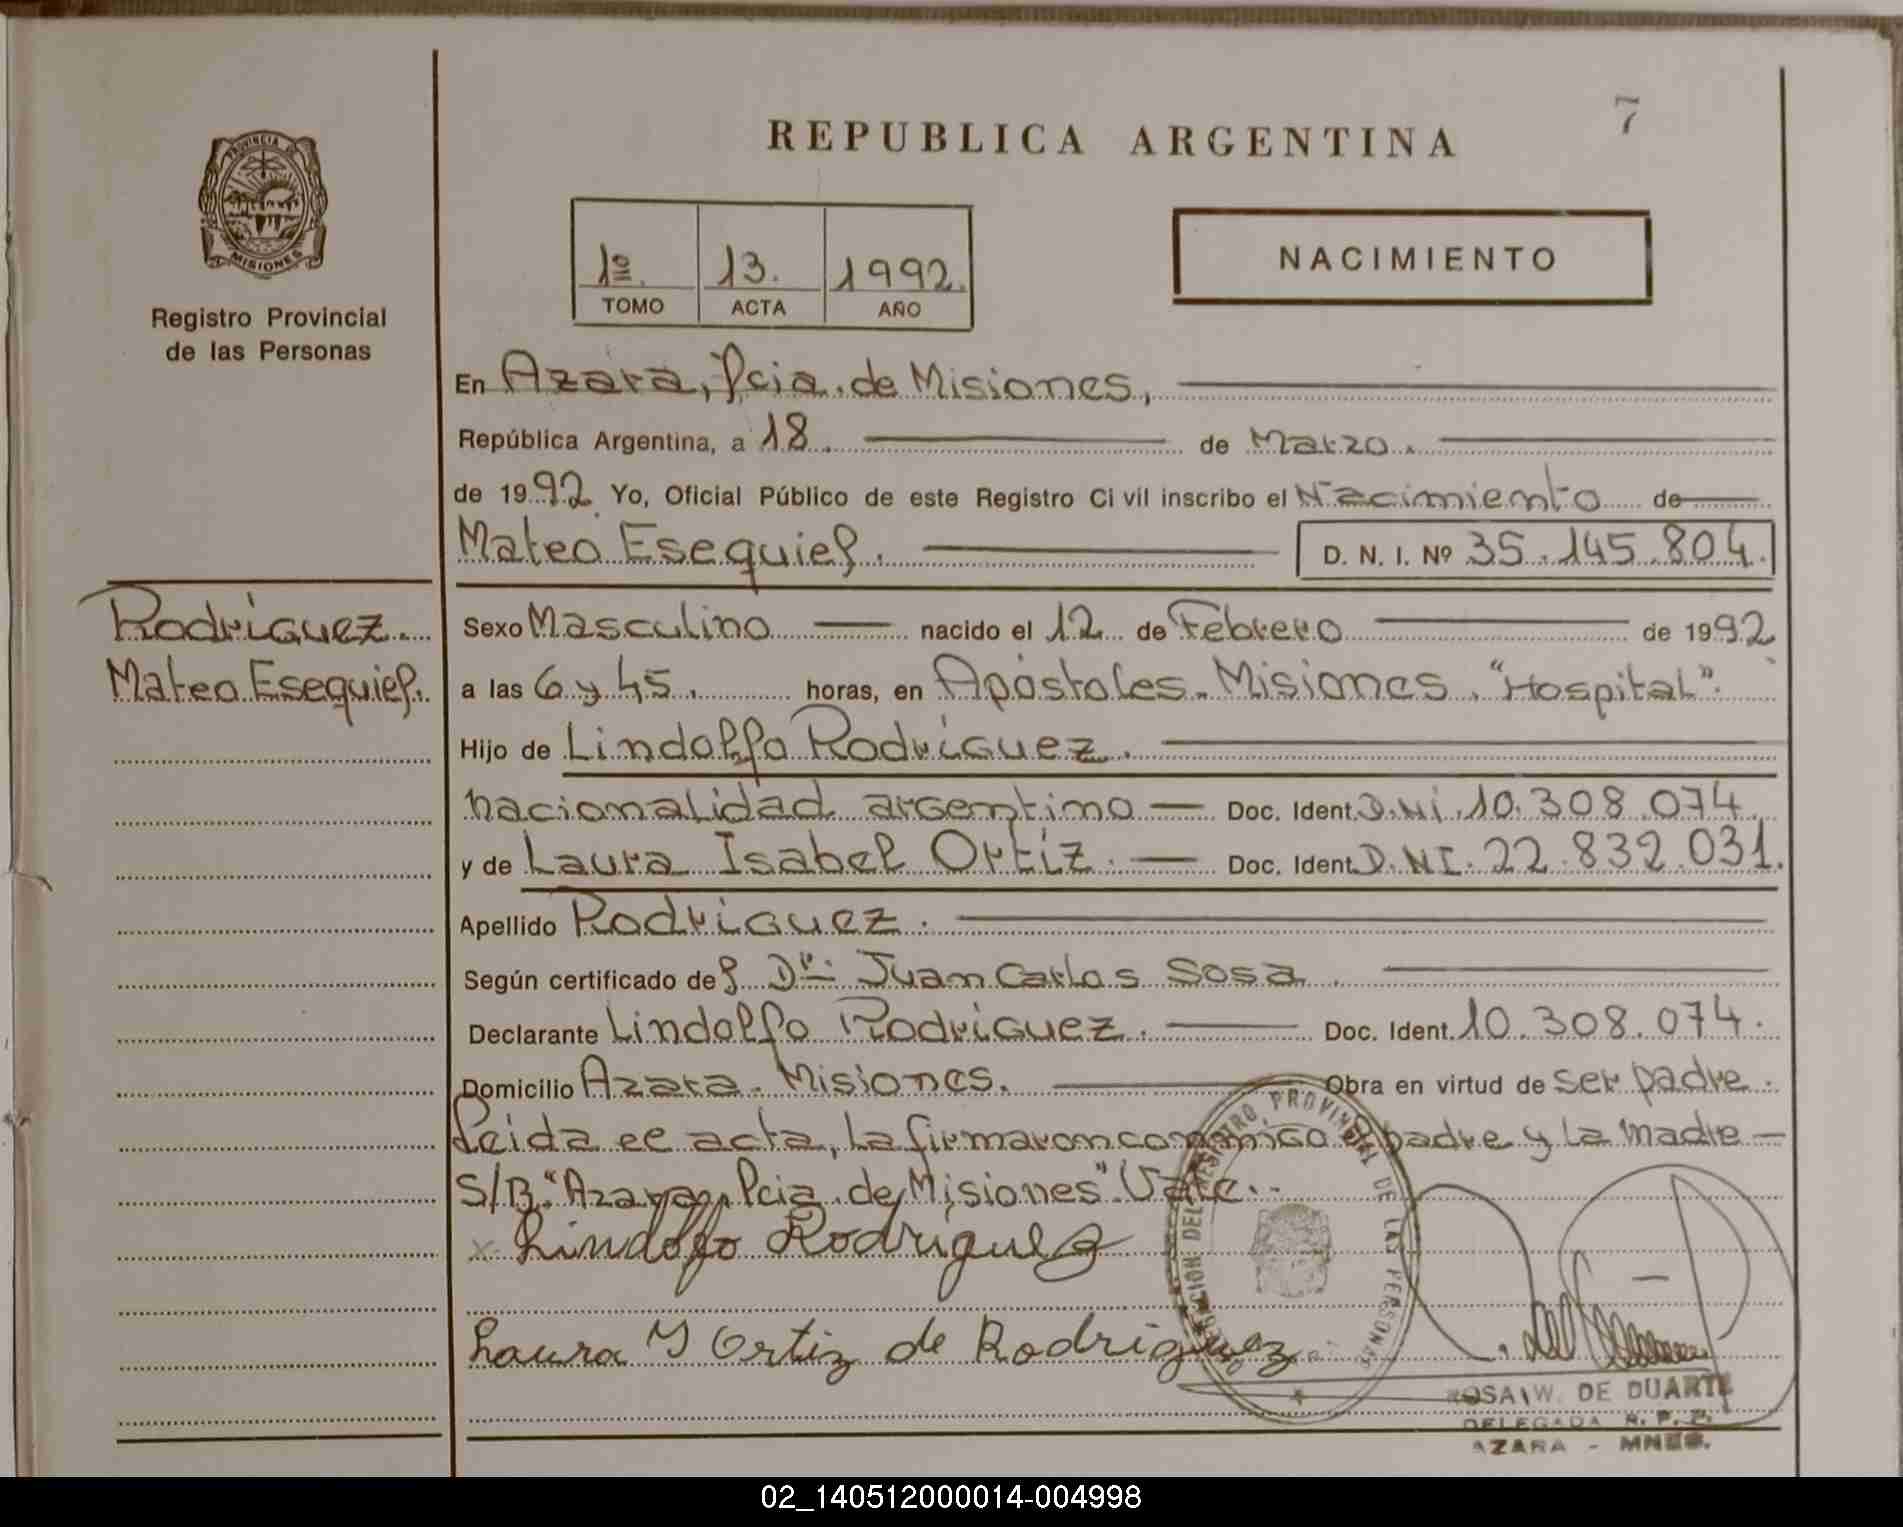 7
REPUBLICA ARGENTINA
PROVINCIA DE
MISIONES
Registro Provincial
de las Personas
1º. 13. 1992.
TOMO ACTA AÑO
NACIMIENTO
En Azara, Pcia. de Misiones,
República Argentina, a 18. de Marzo.
de 1992. Yo, Oficial Público de este Registro Civil inscribo el Nacimiento de
Mateo Esequiel. D. N. I. Nº 35.145.804.
Rodriguez.
Mateo Esequiel.
Sexo Masculino nacido el 12 de Febrero de 1992
a las 6 y 45. horas, en Apóstoles. Misiones. "Hospital".
Hijo de Lindolfo Rodriguez.
nacionalidad argentino Doc. Ident. D.NI. 10.308.074.
y de Laura Isabel Ortiz. Doc. Ident. D.NI. 22.832.031.
Apellido Rodriguez.
Según certificado del Dr. Juan Carlos Sosa.
Declarante Lindolfo Rodriguez. Doc. Ident. 10.308.074.
Domicilio Azara. Misiones. Obra en virtud de ser padre.
Leida el acta, la firmaron conmigo el padre y la madre
S/B. "Azara, Pcia. de Misiones". Vale.
x Lindolfo Rodriguez
Laura I Ortiz de Rodriguez
DELEGACION DEL REGISTRO PROVINCIAL DE LAS PERSONAS
ROSA W. DE DUARTE
DELEGADA R. P. P.
AZARA - MNES.
02_140512000014-004998